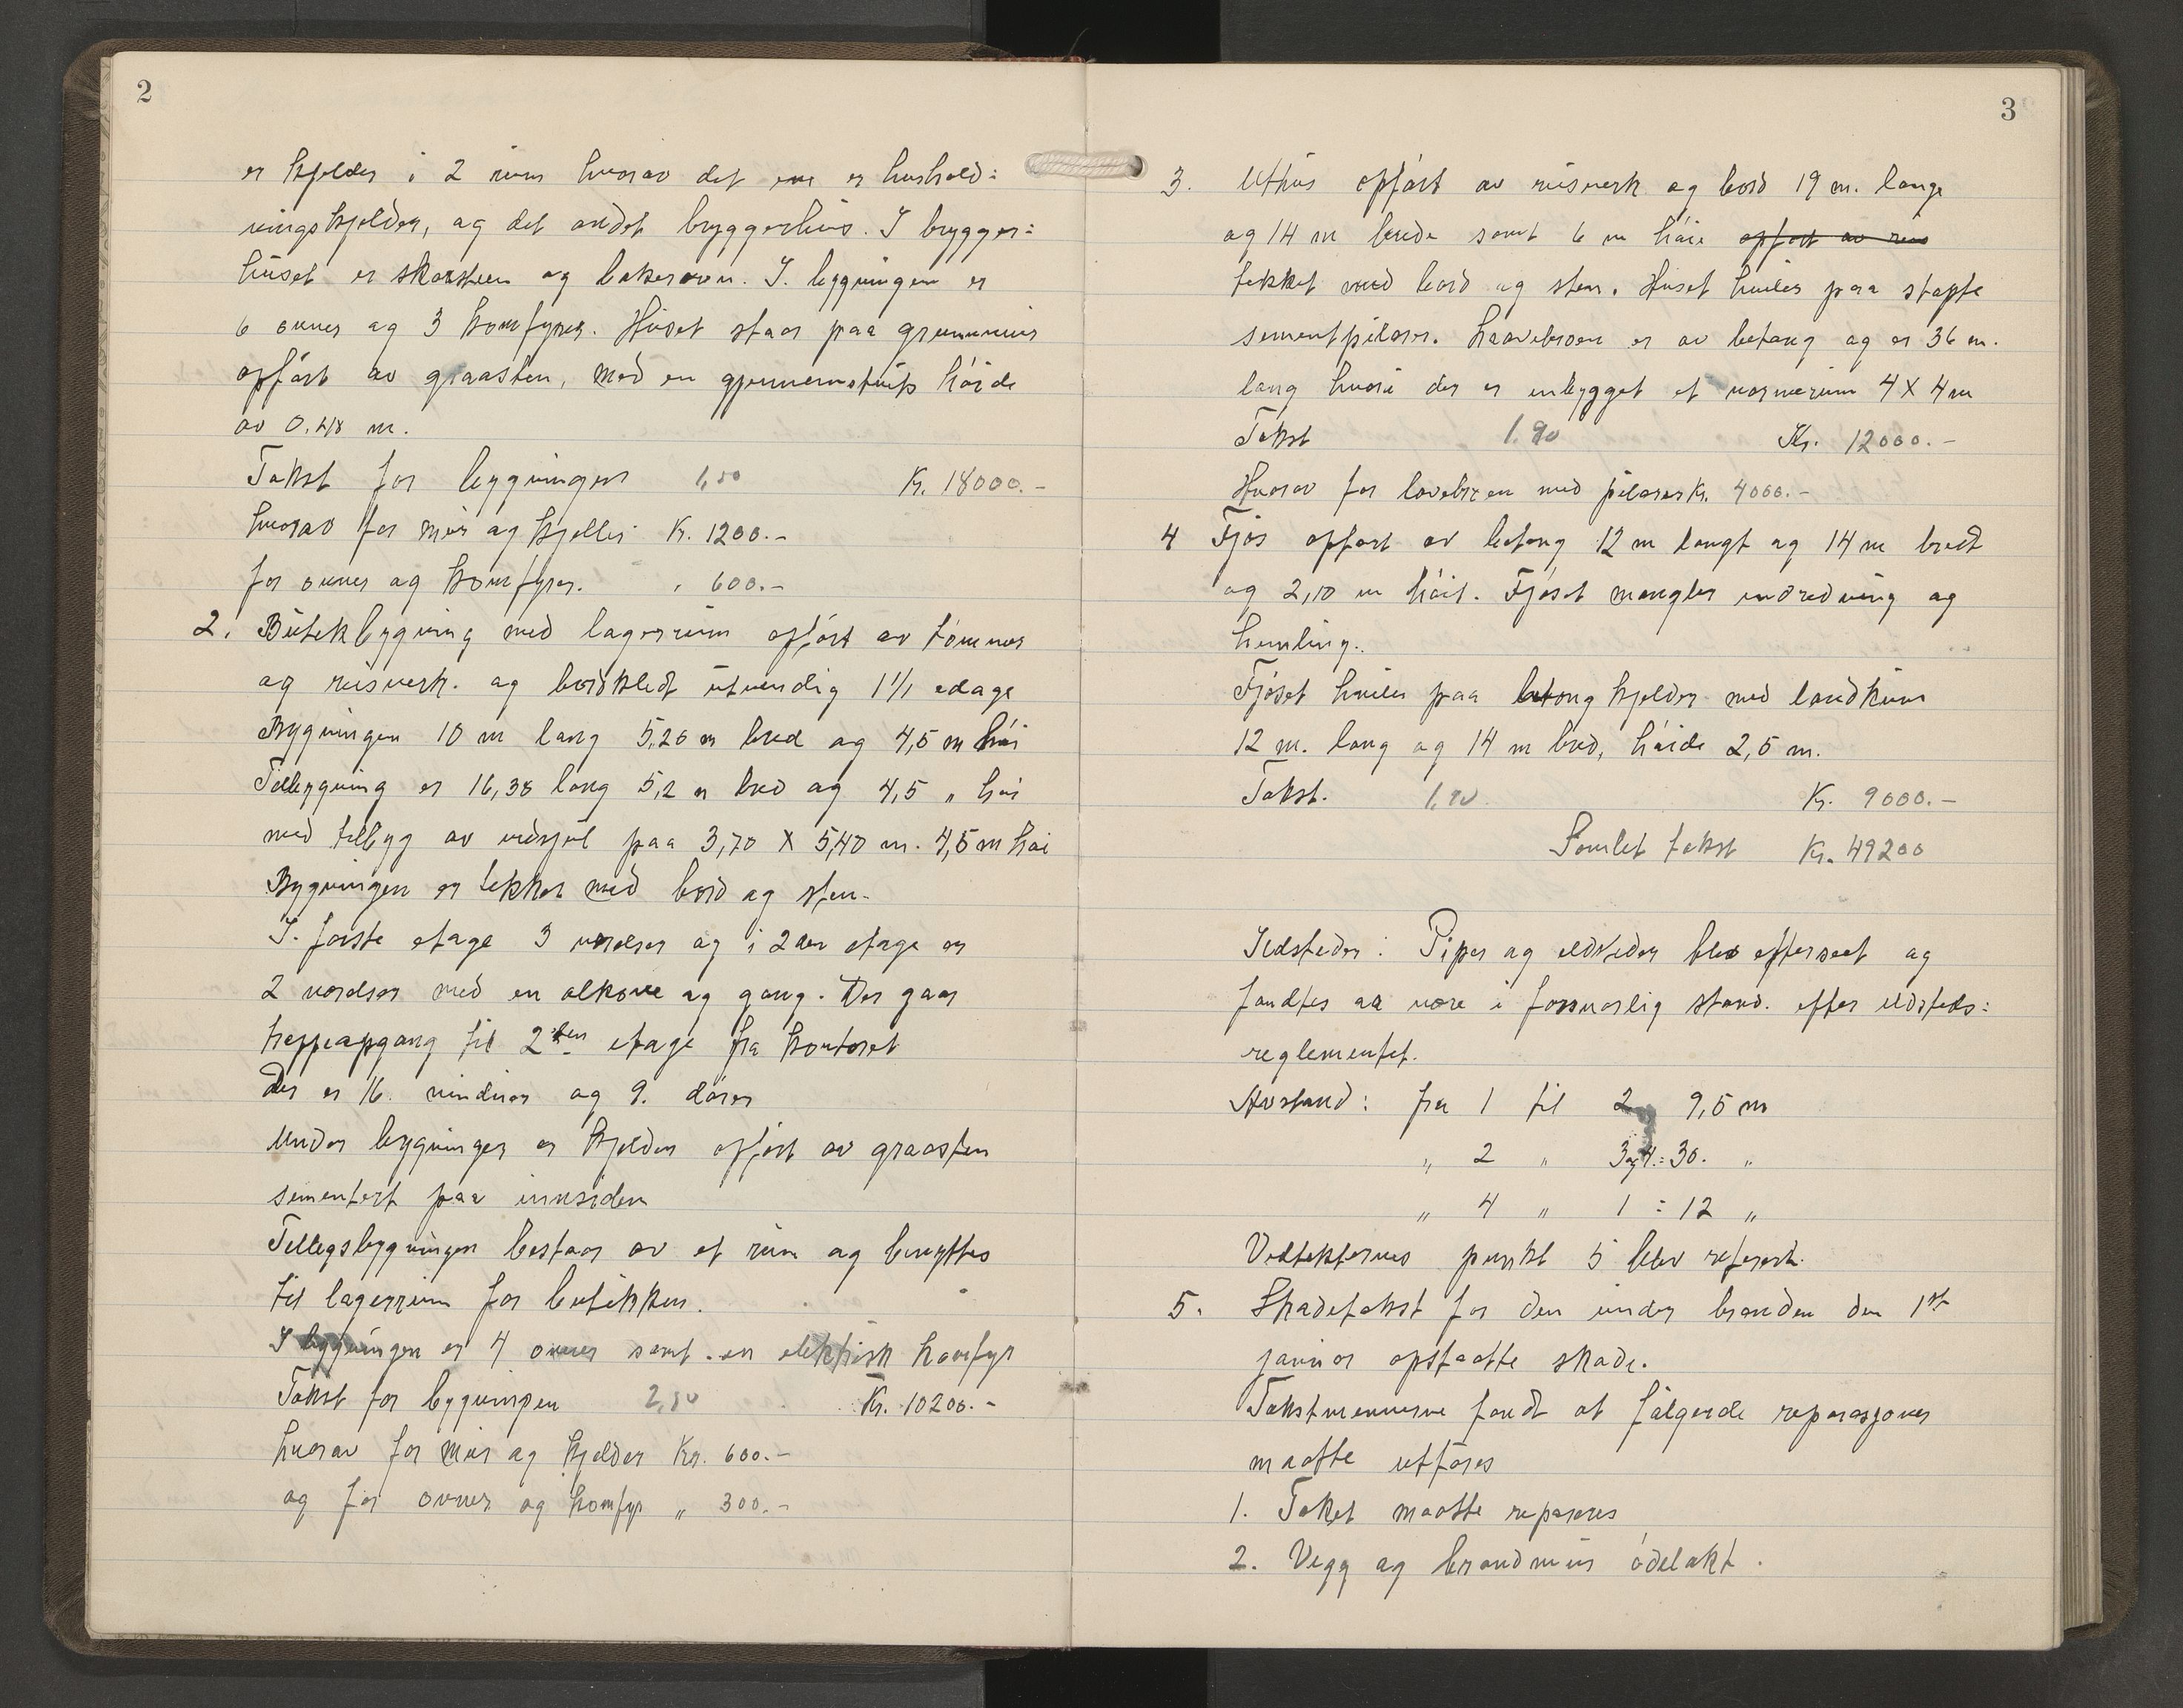 2
er kjelder i 2 rum hvorav det ene er hushold=
ningskjelder, og det andet bryggerhus. I brygger=
huset er skorsteen og bakerovn. I. bygningen er
6 ovner og 3 komfyrer. Huset staar paa grunnmur
opført av graasten, med en gjennemsnits høide
av 0.48 m.
Takst for bygningen 1,50 Kr. 18000.-
hvorav for mur og kjeller Kr. 1200.-
for ovner og komfyrer. " 600.-
2. Butikbygning med lagerrum opført av tømmer
og reisverk. og bordkledt utvendig 1 1/1 edage
Bygningen 10 m lang 5,20 m bred og 4,5 m høi
Tilbygning er 16,38 lang 5,2 m bred og 4,5 " høi
med tilbyg av vedsjul paa 3,70 X 5,40 m. 4,5 m høi
Bygningen er tekket med bord og sten.
I. første etage 3 værelser og i 2den etage er
2 værelser med en alkove og gang. Der gaar
trappeopgang til 2den etage fra kontoret
Der er 16. vinduer og 9. dører
Under bygningen er kjelder opført av graasten
sementert paa innsiden
Tillegsbygningen bestaar av et rum og benyttes
til lagerrum for butikken.
I bygningen er 4 ovner samt en elektrisk komfyr
Takst for bygningen 2,50 Kr. 10200.-
hvorav for mur og kjelder Kr. 600.-
og for ovner og komfyr " 300.-
3
3. Uthus opført av reisverk og bord 19 m. lange
og 14 m brede samt 6 m høie opført av reis
tekket med bord og sten. Huset hviler paa støpte
sementpilarer. Laavebroen er av betong og er 36 m.
lang hvori der er innbygget et 4 X 4 m
Takst 1.90 Kr. 12000.-
Hvorav for lavebroen med pilarer Kr. 4000.-
4 Fjøs opført av betong 12 m langt og 14 m bredt
og 2,10 m høit. Fjøset mangler indredning og
hemling..
Fjøset hviler paa betong kjelder med landkum
12 m. lang og 14 m bred, høide 2,5 m.
Takst. 1,90 Kr. 9000.-
Samlet takst Kr. 49200
Ildsteder: Piper og ildsteder blev efterseet og
fandtes aa være i forsvarlig stand. efter ildsteds=
reglementet.
Avstand: fra 1 til 2 9,5 m
" 2 " 3 og 4.= 30. "
" 4 " 1 = 12 "
Vedtekternes punkt 5 blev referert.
5. Skadetakst for den under branden den 1st
januar opstaatte skade.
Takstmennerne fandt at følgende reparasjoner
maatte utføres
1. Taket maatte reparers
2. Vegg og brandmur ødelakt.